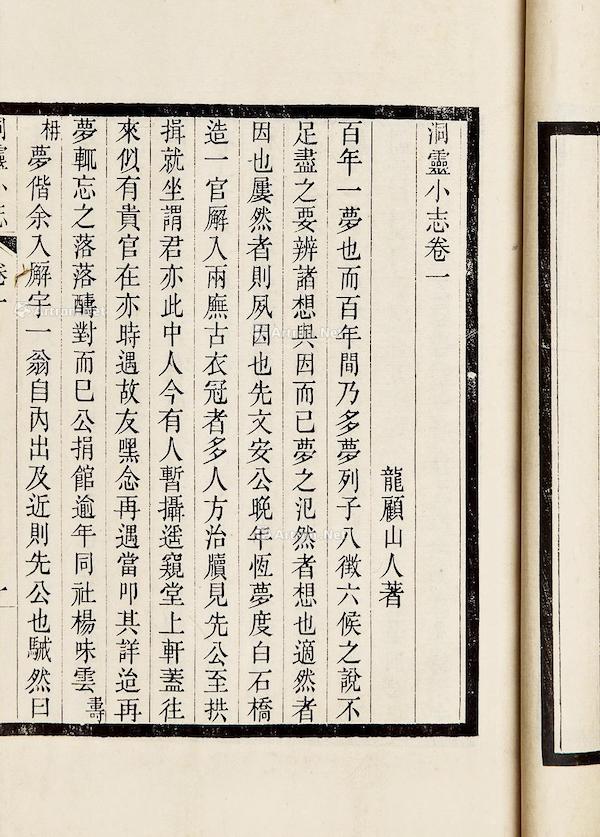 洞靈小志卷一
龍顧山人著
百年一夢也而百年間乃多夢列子八徵六候之說不
足盡之要辨諸想與因而已夢之氾然者想也適然者
因也屢然者則夙因也先文安公晚年恆夢度白石橋
造一官廨入兩廡古衣冠者多人方治牘見先公至拱
揖就坐謂君亦此中人今有人暫攝遥窺堂上軒蓋往
來似有貴官在亦時遇故友嘿念再遇當叩其詳迨再
夢輒忘之落落醻對而已公捐館逾年同社楊味雲壽
枏夢偕余入廨宇一翁自內出及近則先公也駴然曰
洞靈小志 卷一
Artron.Net